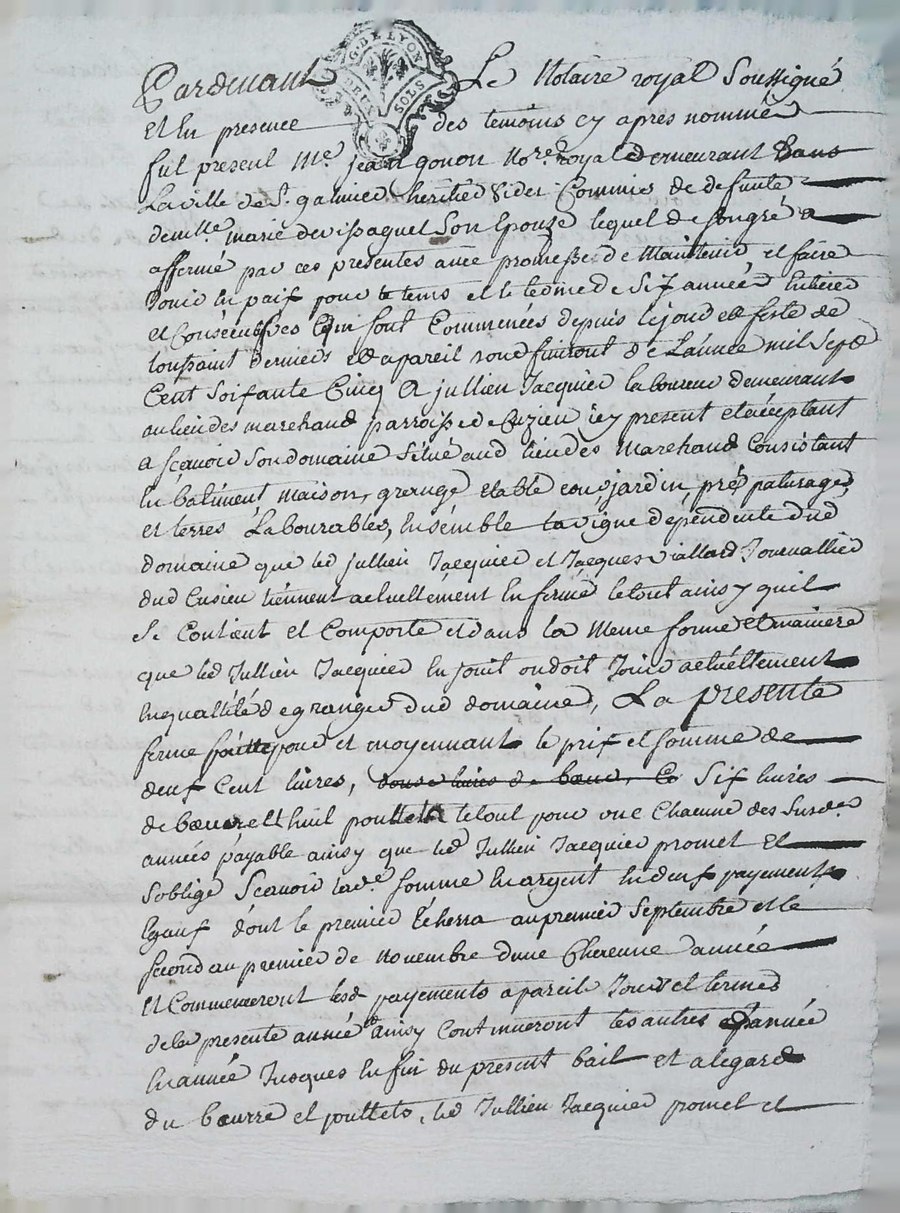 Pardevant Le Notaire royal Soussigné
G. DE LYON
DEUX SOLS
Et En presence des temoins cy apres nommés
fut present Me. jean gonon Nore royal demeurant dans
La ville de St. galmier heritier Commis de defunte
demlle. marie de vissaguet Son Epouse lequel de son gré a
affermé par ces presentes avec promesse de Maintenir et faire
Jouir En paix pour le tems et le terme de Six années Entieres
et Consécutives qui sont Commencées depuis le jour et feste de
toussaint dernier et a pareil Jour finiront de L'année mil Sept
Cent Soixante Cinq A jullien Jacquier laboureur demeurant
au lieu des marchand parroisse de Cuzieu icy present et acceptant
a sçavoir Son domaine Situé aud lieu des Marchand Consistant
En batiment maison, grange Etable cour, jardin, prés paturages
et terres Labourables, Ensemble la vigne dependente dud
domaine que led jullien Jacquier et Jacques viallard Journallier
dud Cusieu tiennent actuellement En ferme le tout ainsy quil
Se Contient et Comporte et dans la Meme forme et maniere
que led Jullien Jacquier En jouit ou doit Jouir actuellement
En quallité de granger dud domaine, La presente
ferme faitte pour et moyennant le prix et somme de
deux Cent livres, douse livres de beure, Ce Six livres
de beurre et huit poullets le tout pour une Chacune des Susdes
années payable ainsy que led Jullien Jacquier promet Et
S'oblige Scavoir lade. somme En argent En deux payements
Egaux dont le premier Echerra au premier Septembre et le
second au premier de Novembre d'une Chacune année
Et Commenceront lesd payements a pareils Jours et termes
de la presente année et ainsy Continueront les autres d'année
En année Jusques En fin du present bail et a legard
du beurre et poullets, led Jullien Jacquier promet et